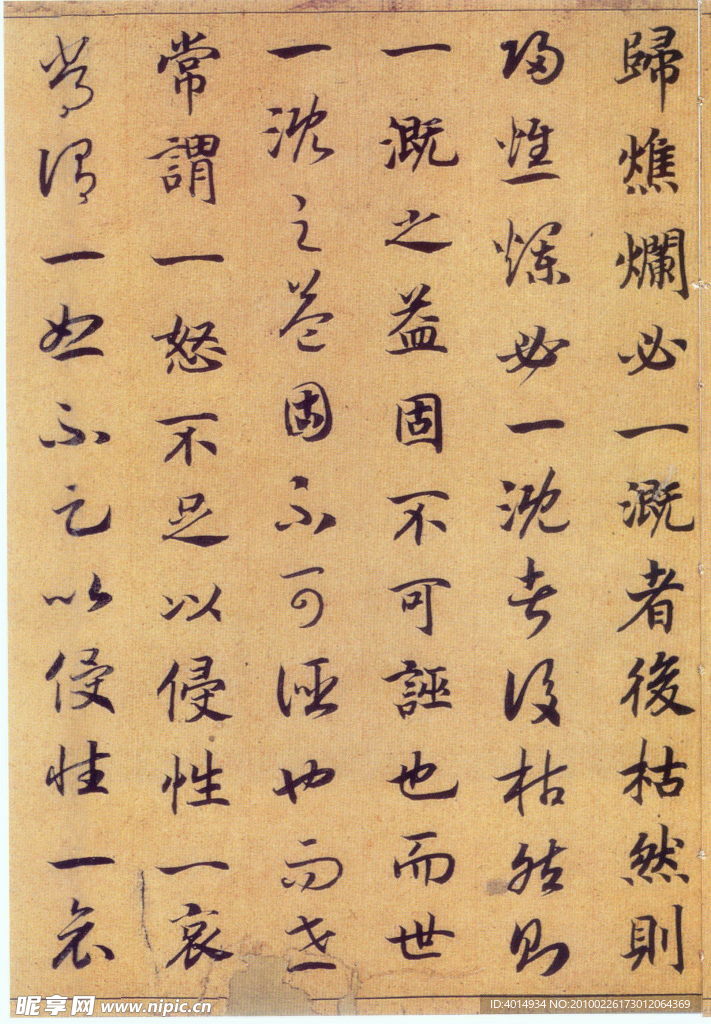 歸燋爛必一溉者後枯然則
歸燋爛必一溉者後枯然則
一溉之益固不可誣也而世
一溉之益固不可誣也而世
常謂一怒不足以侵性一哀
常謂一怒不足以侵性一哀
昵享网 www.nipic.cn
ID:4014934 NO:20100226173012064369